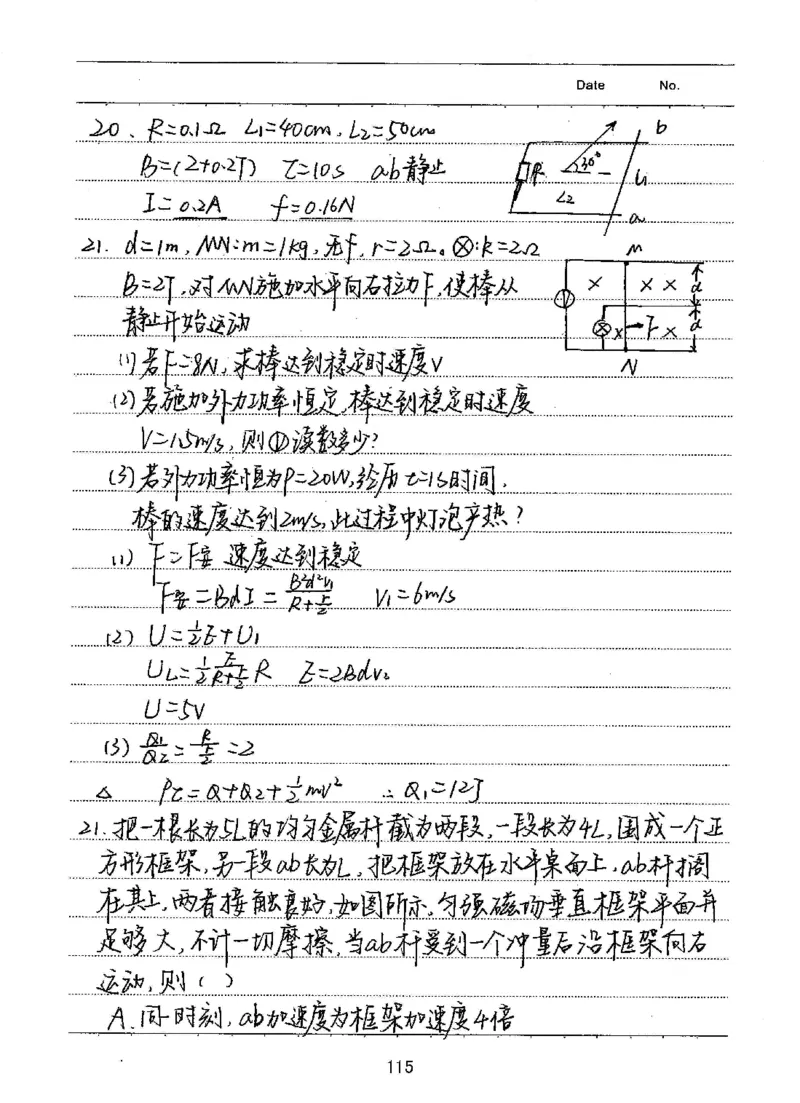 Date No.
20、R=0.1Ω L₁=40cm, L₂=50cm
B=(2+0.2T) t=10s ab静止
I=0.2A f=0.16N
b
30°
R
L₁
L₂
a
21. d=1m, MN:m=1kg, 无f, r=2Ω。⊗:R=2Ω
B=2T,对MN施加水平向右拉力F,使棒从
静止开始运动
M
V
× × ×
d
d
× F ×
N
(1)若F=8N,求棒达到稳定时速度V
(2)若施加外力功率恒定,棒达到稳定时速度
V=1.5m/s,则Ⓥ读数多少?
(3)若外力功率恒为P=20W,经历t=1s时间,
棒的速度达到2m/s,此过程中灯泡产热?
(1) F=F安 速度达到稳定
F安=BdI=B²d²v₁/(R+r/2) V₁=6m/s
(2) U=½E+U₁
U_L=½E/(R+r/2)R E=2Bdv₂
U=5V
(3) Q₁/Q₂=R/(r/2)=2
△ Pt=Q+Q₂+½mv² ∴Q₁=12J
21.把一根长为5L的均匀金属杆截为两段,一段长为4L,围成一个正
方形框架,另一段ab长为L,把框架放在水平桌面上,ab杆搁
在其上,两者接触良好,如图所示,匀强磁场垂直框架平面并
足够大,不计一切摩擦,当ab杆受到一个冲量后沿框架向右
运动,则( )
A.同一时刻,ab加速度为框架加速度4倍
115